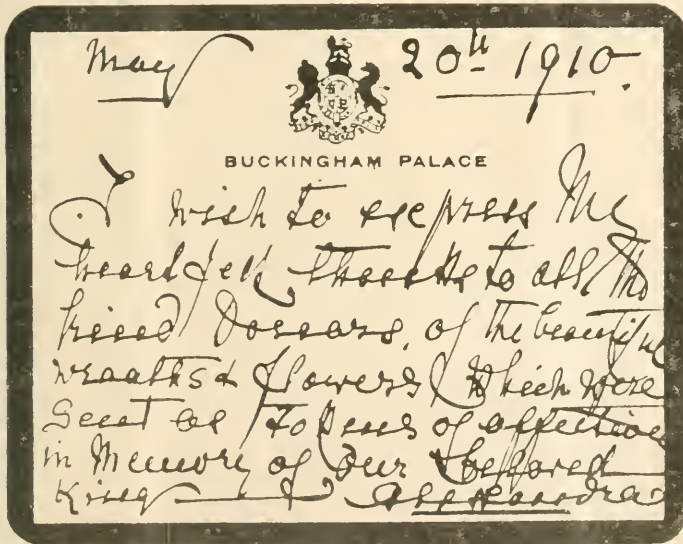 May 20th 1910.
BUCKINGHAM PALACE
I wish to express My
heartfelt thanks to all the
kind Donors, of the beautiful
wreaths & flowers which were
sent as Tokens of affection
in Memory of Our Beloved
King Alexandra